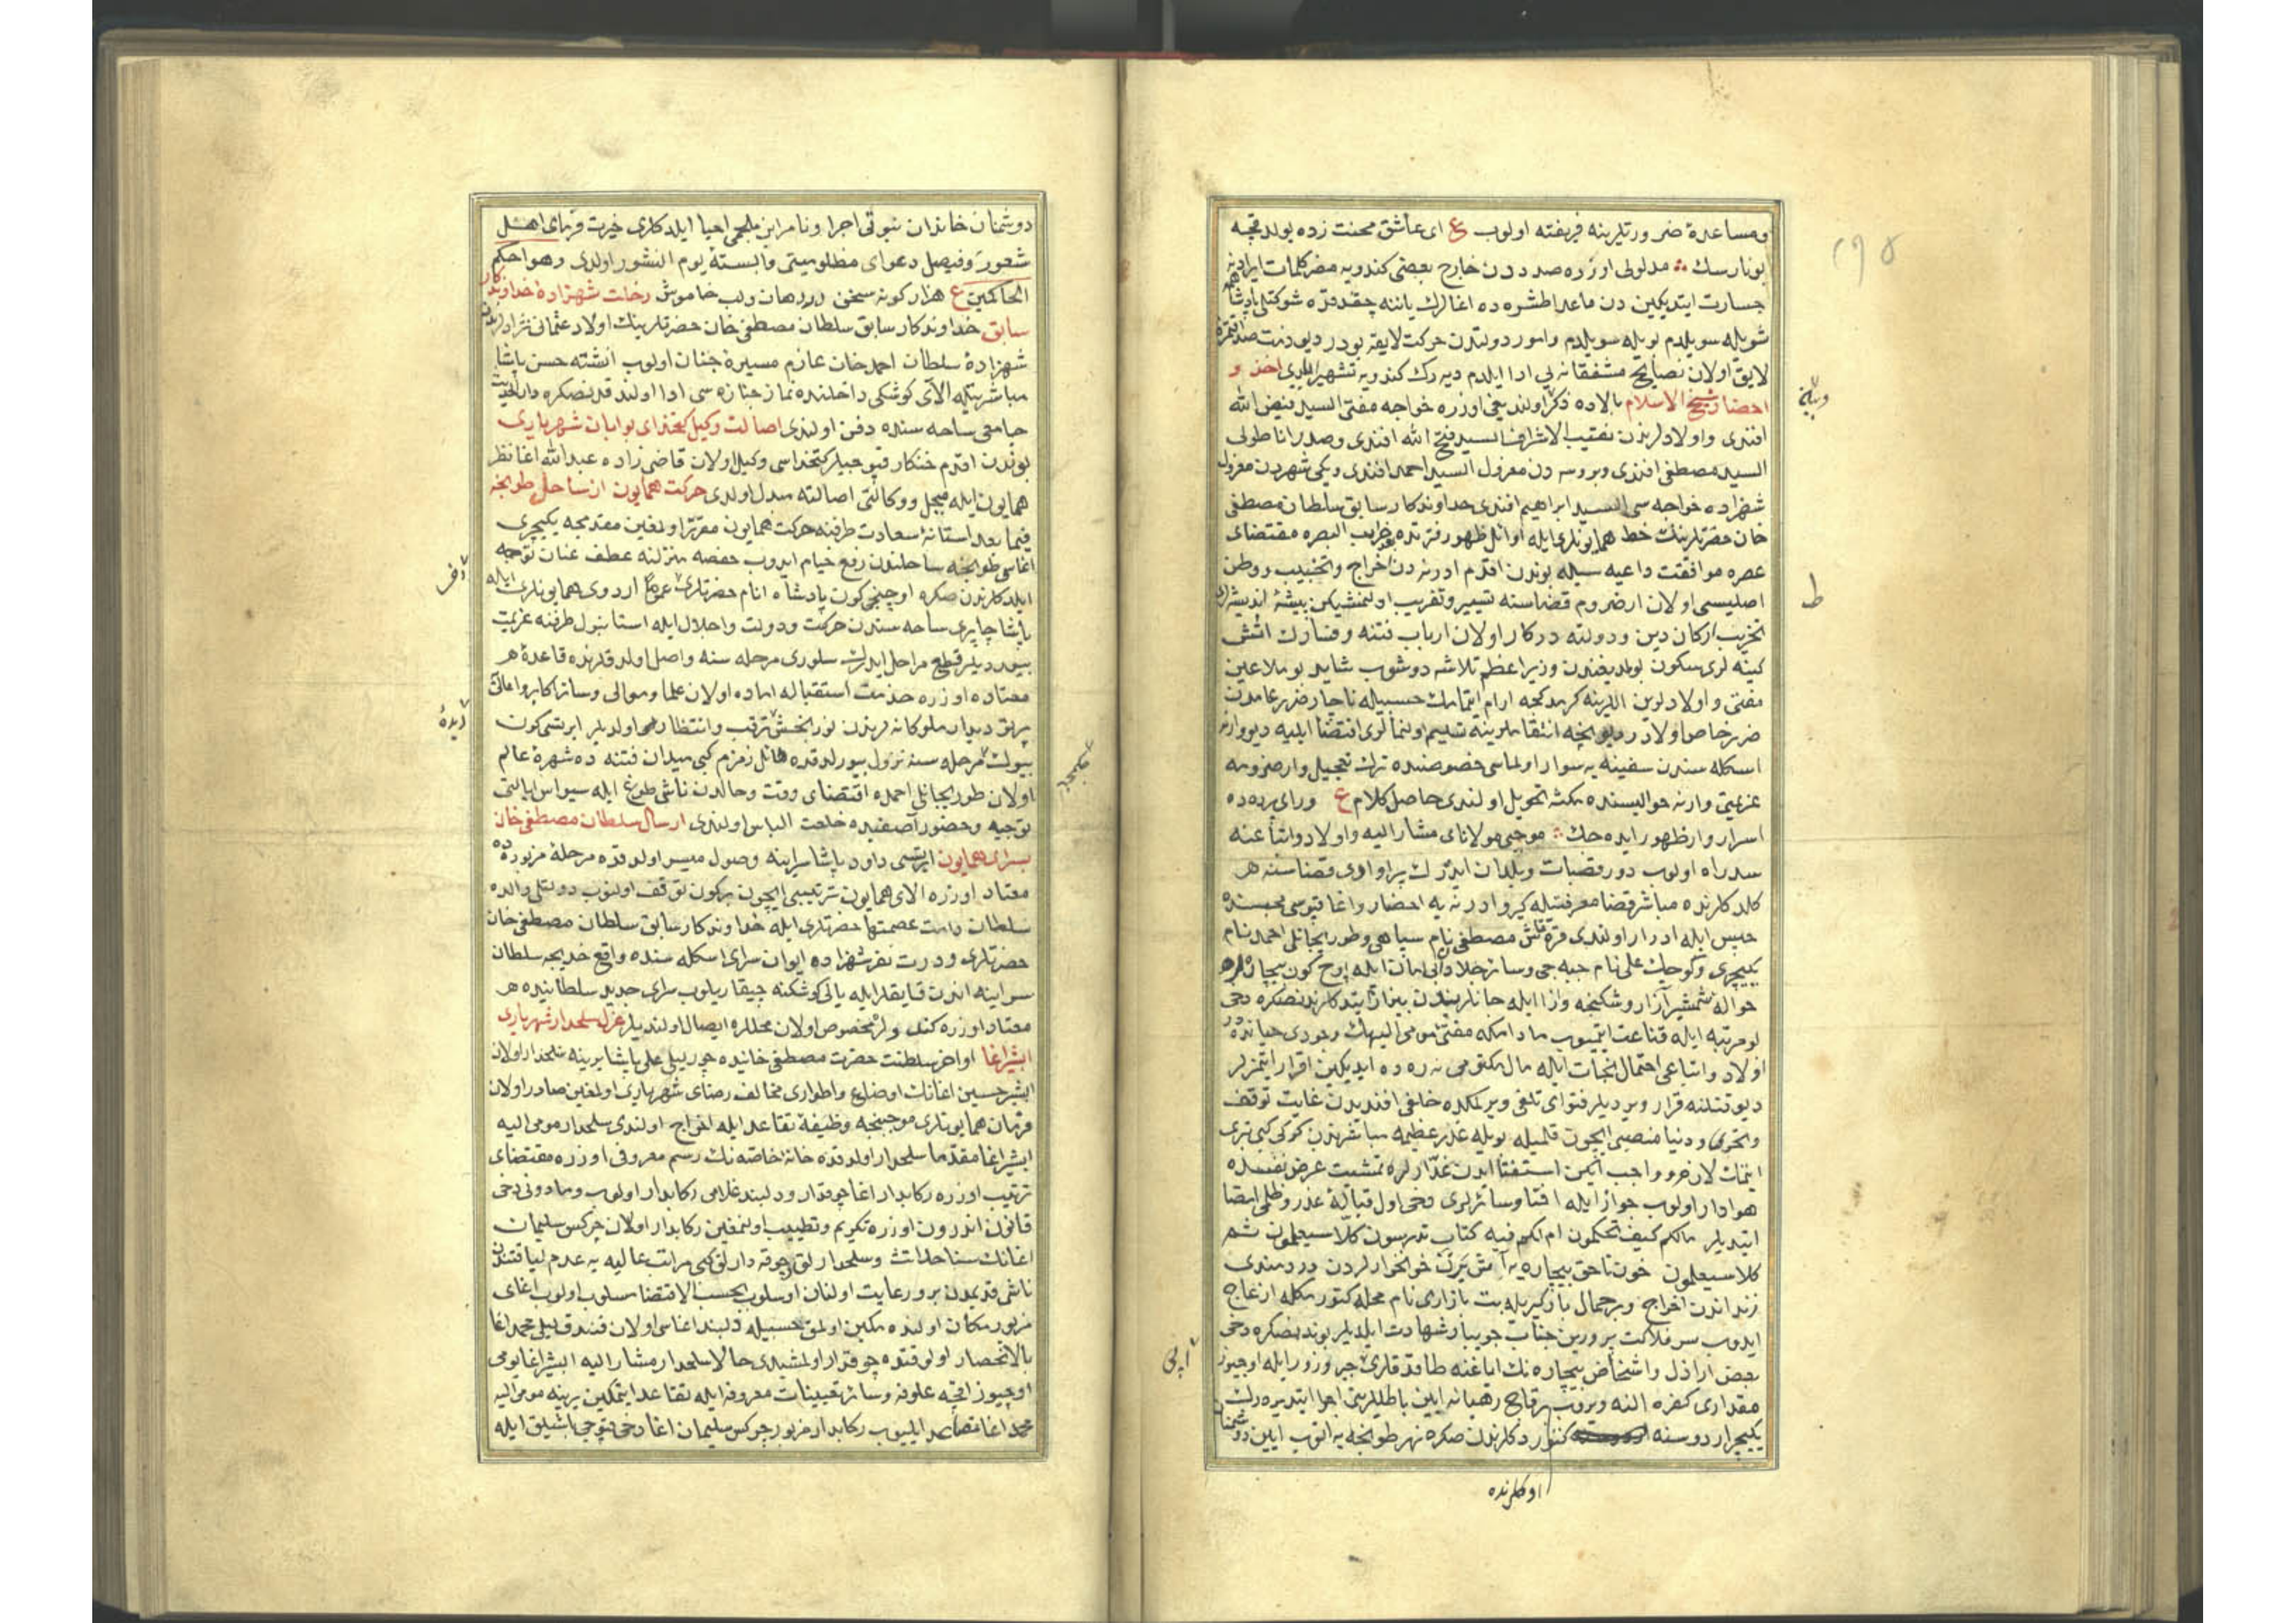 ومساعدۀ ضرورتلرینه فریفته اولوب ع ای عاشق محنت زده یولده قچه
بونارسك مدلولی اوزره صددن خارج بعضی كندویه مضر كلمات ایرادینه
جسارت ایتدیكین دن ماعدا طشره ده اغالرك یاننه چقدقده شوكتلی پادشاهمه
شویله سویلدم بویله سویلدم وامور دولتدن حركت لایقه بودر دیو
لایق اولان نصایح مشفقانه یی ادا ایلدم دیه رك كندویه تشهیر ایلدی اخذ و
احضار شیخ الاسلام بالاده ذكر اولندیغی اوزره خواجه مفتی السید فیض الله
افندی واولادلرندن نقیب الاشراف السید فتح الله افندی وصدر اناطولی
السید مصطفی افندی وبروسه دن معزول السید احمد افندی ویكی شهردن معزول
شهزاده خواجه سی السید ابراهیم افندی خداوندكار سابق سلطان مصطفی
خان حضرتلرینك خط همایونلری ایله اوائل ظهور فتنه ده البصره مقتضای
عصره موافقت داعیه سیله بوندن اقدم ادرنه دن اخراج و وطن
اصلیسی اولان ارضروم قضاسنه تسییر وتغریب اولنمشیكن بیشۀ اندیشه لری
تخریب اركان دین ودولته دركار اولان ارباب فتنه وفسادك اتش
كینه لری سكون بولمدیغندن وزیر اعظم تلاشه دوشوب شاید بو ملاعین
مفتی واولادلرین اللرینه كرمدكجه ارام ایتمامك حسبیله ناچار ضرر عامدن
ضرر خاص اولادر دیو انتقاملرینه تسلیم اولنمالری اقتضا ایلیه دیو وارنه
اسكله سندن سفینه یه سوار اولماسی خصوصنده ترك تعجیل وارضرومه
عزیمتی وارنه حوالیسنده مكثه تحویل اولندی حاصل كلام ع ورای پرده ده
اسرار وار ظهور ایده جك موجبی مولانای مشار الیه واولاد واتباعنه
سد راه اولوب دور قصبات وبلدان ایدرك پراوادی قضاسنه
كلدكلرنده مباشر قضا معرفتیله كیرو ادرنه یه احضار واغا قپوسی محبسنده
حبس ایله ادرار اولندی قره قاش مصطفی نام سپاهی وطوریجانلی احمد نام
یكیچری وكوچك علی نام جبه جی وسائر جلادلر ایله اوچ كون بیچاره لره
حواله شمشیر آزار وشكنجه واذا ایله جانلرندن بیزار ایتدكلرندنصكره دخی
بو مرتبه ایله قناعت ایتمیوب مادامكه مفتئ مومی الیهك وجودی حیاتده در
اولاد واتباعی احتمال نجات ایله مال مكتومی نه ره ده ایدیكین اقرار ایتمزلر
دیو قتلنه قرار ویردیلر فتوای تلفی ویرلمكده خلفی افندیدن غایت توقف
وتحرّی و دنیا منصبی ایچون قلمیله بویله غدر عظیمه مباشرتدن كوكی كبی تبری
ایتمك لازم وواجب ایكن استفتا ایدن غدارلره تمشیت عرض نفسده
هوادار اولوب جواز ایله افتا وسائرلری دخی اول قبالۀ غدر وظلمی امضا
ایتدیلر مالكم كیف تحكمون ام لكم فیه كتاب تدرسون كلا سیعلمون ثم
كلا سیعلمون خون ناحق بیچاره یه خونخوارلردن دردمندی
زنداندن اخراج وبر حمال باركیریله بت بازاری نام محله كتوررك كله ازعاج
ایدوب سر فلاكت پرورین جناب جویبار شهادت ایلدیلر بوندنصكره دخی
بعض اراذل واشخاص بیچاره نك ایاغنه طاقدقلری جبر وزور ایله اوچیوز
مقداری كفره النه ویروب رهبانه ایین باطللرینی اجرا ایتدیره رك
یكیچری اردوسنه كتوردكلرندن صكره نهر طونجه یه اتوب ایین دوشمنان
اوكلرنده
دوشمنان خاندان نبوتی اجرا ونام ابن ملجمی احیا ایلدكلری حیرت فرمای اهل
شعور وفیصل دعوای مظلومیتی وابستۀ یوم النشور اولدی وهو احكم
الحاكمین ع هزار كونه سخن در دهان ولب خاموش رحلت شهزادۀ خداوندكار
سابق خداوندكار سابق سلطان مصطفی خان حضرتلرینك اولاد عثمان نژادلرندن
شهزادۀ سلطان احمد خان عازم مسیرۀ جنان اولوب انشته حسن پاشا
مباشرتیله الای كوشكی داخلنده نماز جنازه سی ادا اولندقدنصكره دار الحدیث
جامعی ساحه سنده دفن اولندی اصالت وكیل كتخدای بوابان شهریاری
بوندن اقدم خنكار قپوجیلر كتخداسی وكیل اولان قاضی زاده عبد الله اغا نظر
همایون ایله مبجل ووكالتی اصالته مبدل اولدی حركت همایون از ساحل طونجه
فیما بعد استانۀ سعادت طرفنه حركت همایون مقرر اولمغین مقدمجه یكیچری
اغاسی طونجه ساحلندن رفع خیام ایدوب حفصه منزلنه عطف عنان توجه
ایلدكلرندن صكره اوچنجی كون پادشاه انام حضرتلری عموما اردوی همایونلری ایله
پاشا چایری ساحه سندن حركت ودولت واجلال ایله استانبول طرفنه عزیمت
بیوردیلر قطع مراحل ایدرك سلوری مرحله سنه واصل اولدقلرنده قاعدۀ
معتاده اوزره خدمت استقباله اماده اولان علما وموالی وسائر اكابر واعالی
دیدار ملوكانه لرندن نور بخش ترقب وانتظار اولدیلر ایرتسی كون
بیوك مرحله سنه نزول بیورلدقده قاتل زمزم كبی میدان فتنه ده شهرۀ عالم
اولان طوریجانلی احمده اقتضای وقت وحالدن ناشی طوغ ایله سیواس ایالتی
توجیه وحضور آصفیده خلعت الباس اولندی ارسال سلطان مصطفی خان
بسرای همایون ایرتسی داود پاشا سراینه وصول میسر اولدقده مرحلۀ مزبوره ده
معتاد اوزره الای همایون ترتیبی ایچون بر كون توقف اولنوب دولتلی والده
سلطان دامت عصمتها حضرتلری ایله خداوندكار سابق سلطان مصطفی خان
حضرتلری ودرت نفر شهزاده ایوان سرای اسكله سنده واقع خدیجه سلطان
سراینه اندن قایقلر ایله یالی كوشكنه چیقاریلوب سرای جدید سلطانیده
معتاد اوزره كندولره مخصوص اولان محللره ایصال اولندیلر عزل سلحدار شهریاری
ابشیر اغا اواخر سلطنت حضرت مصطفی خانیده چورلیلی علی پاشا یرینه سلحدار اولان
ابشیر حسین اغانك اوضاع واطواری مخالف رضای شهریاری اولمغین صادر اولان
فرمان همایونلری موجبنجه وظیفۀ تقاعد ایله اخراج اولندی سلحدار مومی الیه
ابشیر اغا مقدما سلحدار اولدقده خانۀ خاصه نك رسم معروفی اوزره مقتضای
ترتیب اوزره ركابدار اغا چوقدار ودلبند غلامی ركابدار اولوب وما دونی دخی
قانون اندرون اوزره تكریم وتطییب اولنمغین ركابدار اولان چركس سلیمان
اغانك سنا حداثت وسلحدارلق وچوقه دارلق كبی مراتب عالیه یه عدم لیاقتندن
ناشی قدیمدن برو رعایت اولنان اسلوب بحسب الاقتضا مسلوب اولوب اغای
مزبور مكان اولنده مكین اولمق حسبیله دلبند اغاسی اولان فندقلیلی محمد اغا
بالانحصار اول وقتده چوقدار اولمشیدی حالا سلحدار مشار الیه ابشیر اغا یومی
اوچیوز اقچه علوفه وسائر تعیینات معروفه ایله تقاعد ایتمكین یرینه مومی الیه
محمد اغا تصدر ایلیوب ركابدار مزبور چركس سلیمان اغا دخی قپوجی باشیلق ایله